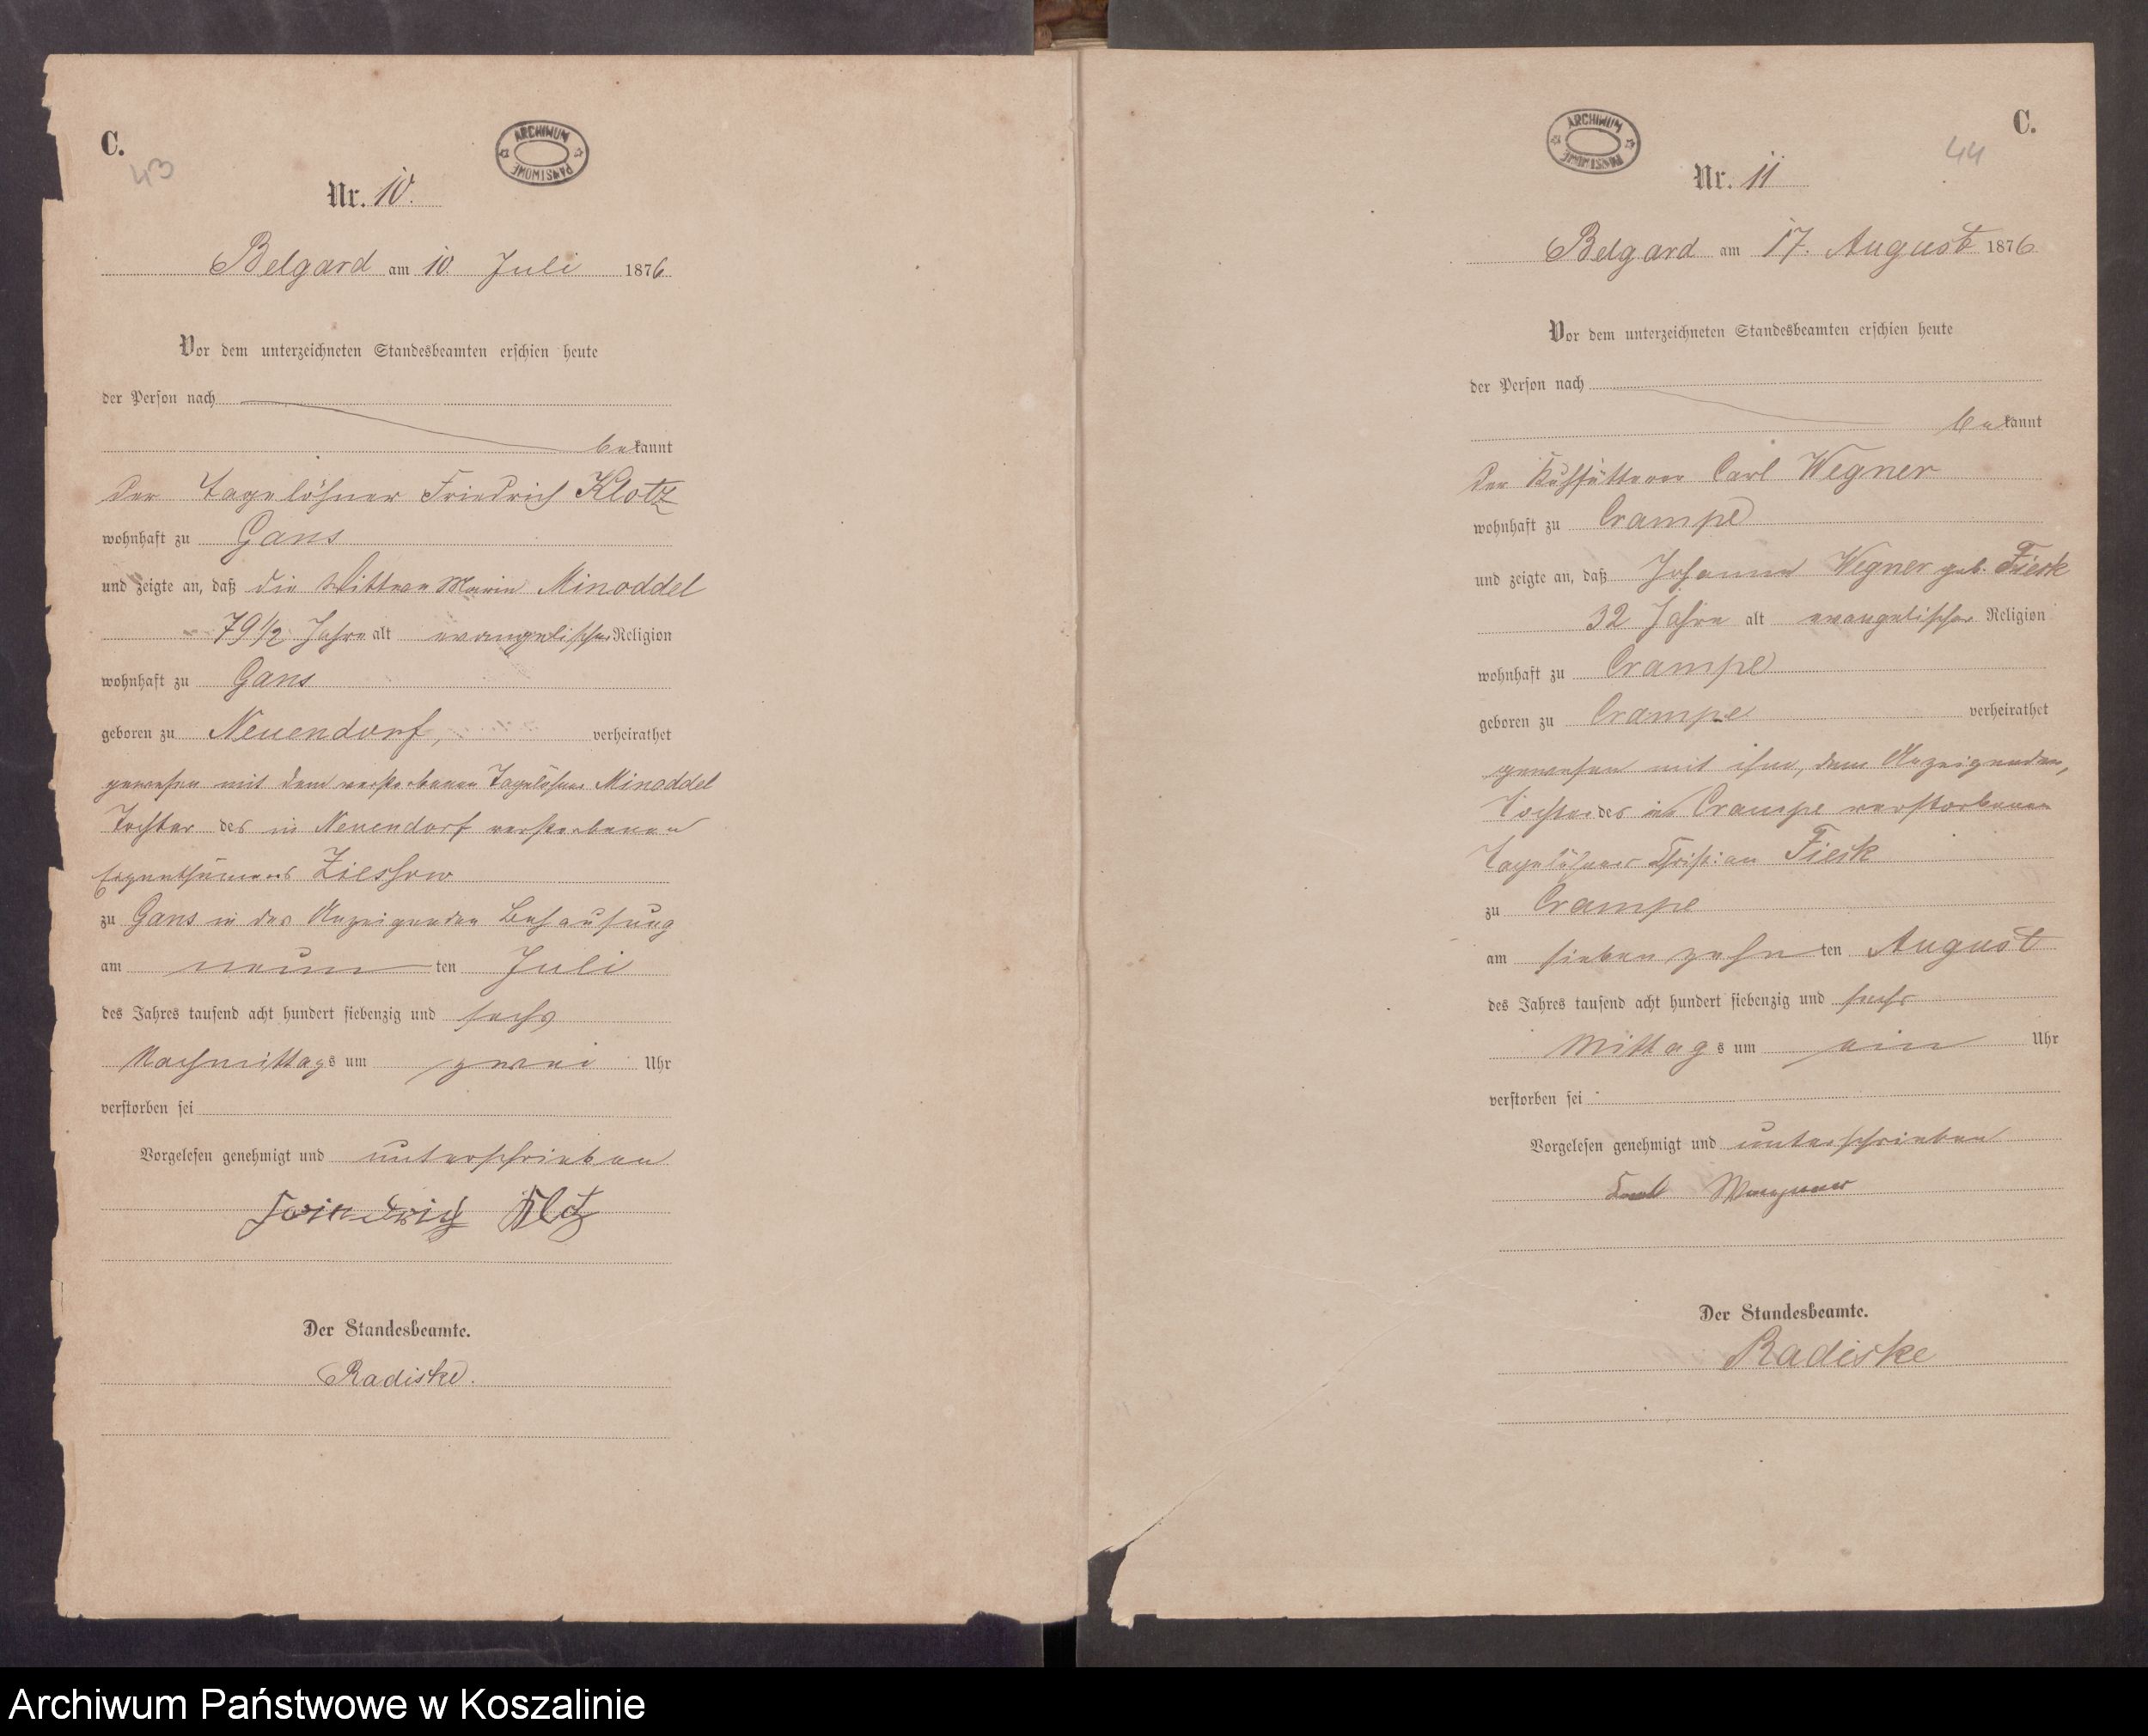 C.
43
ARCHIWUM PAŃSTWOWE
Nr. 10.
Belgard am 10. Juli 1876
Vor dem unterzeichneten Standesbeamten erschien heute
der Person nach
bekannt
der Tagelöhner Friedrich Klotz
wohnhaft zu Gans
und zeigte an, daß die Wittwe Marie Minoddel
79 1/2 Jahre alt evangelischer Religion
wohnhaft zu Gans
geboren zu Neuendorf, verheirathet
gewesen mit dem verstorbenen Tagelöhner Minoddel
Tochter des in Neuendorf verstorbenen
Eigenthümers Ziessow
zu Gans in des Anzeigenden Behausung
am neun ten Juli
des Jahres tausend acht hundert siebenzig und sechs
Nachmittags um zwei Uhr
verstorben sei
Vorgelesen genehmigt und unterschrieben
Friedrich Klotz
Der Standesbeamte.
Radiske.
C.
44
ARCHIWUM PAŃSTWOWE
Nr. 11
Belgard am 17. August 1876
Vor dem unterzeichneten Standesbeamten erschien heute
der Person nach
bekannt
der Kuhfütterer Carl Wegner
wohnhaft zu Crampe
und zeigte an, daß Johanna Wegner geb. Fierk
32 Jahre alt evangelischer Religion
wohnhaft zu Crampe
geboren zu Crampe verheirathet
gewesen mit ihm, dem Anzeigenden,
Tochter des in Crampe verstorbenen
Tagelöhner Christian Fierk
zu Crampe
am siebenzehn ten August
des Jahres tausend acht hundert siebenzig und sechs
Mittags um ein Uhr
verstorben sei
Vorgelesen genehmigt und unterschrieben
Der Standesbeamte.
Radiske
Archiwum Państwowe w Koszalinie